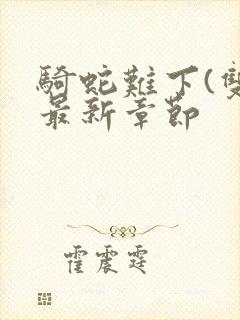 騎蛇難下(雙
最新章節
霍震霆